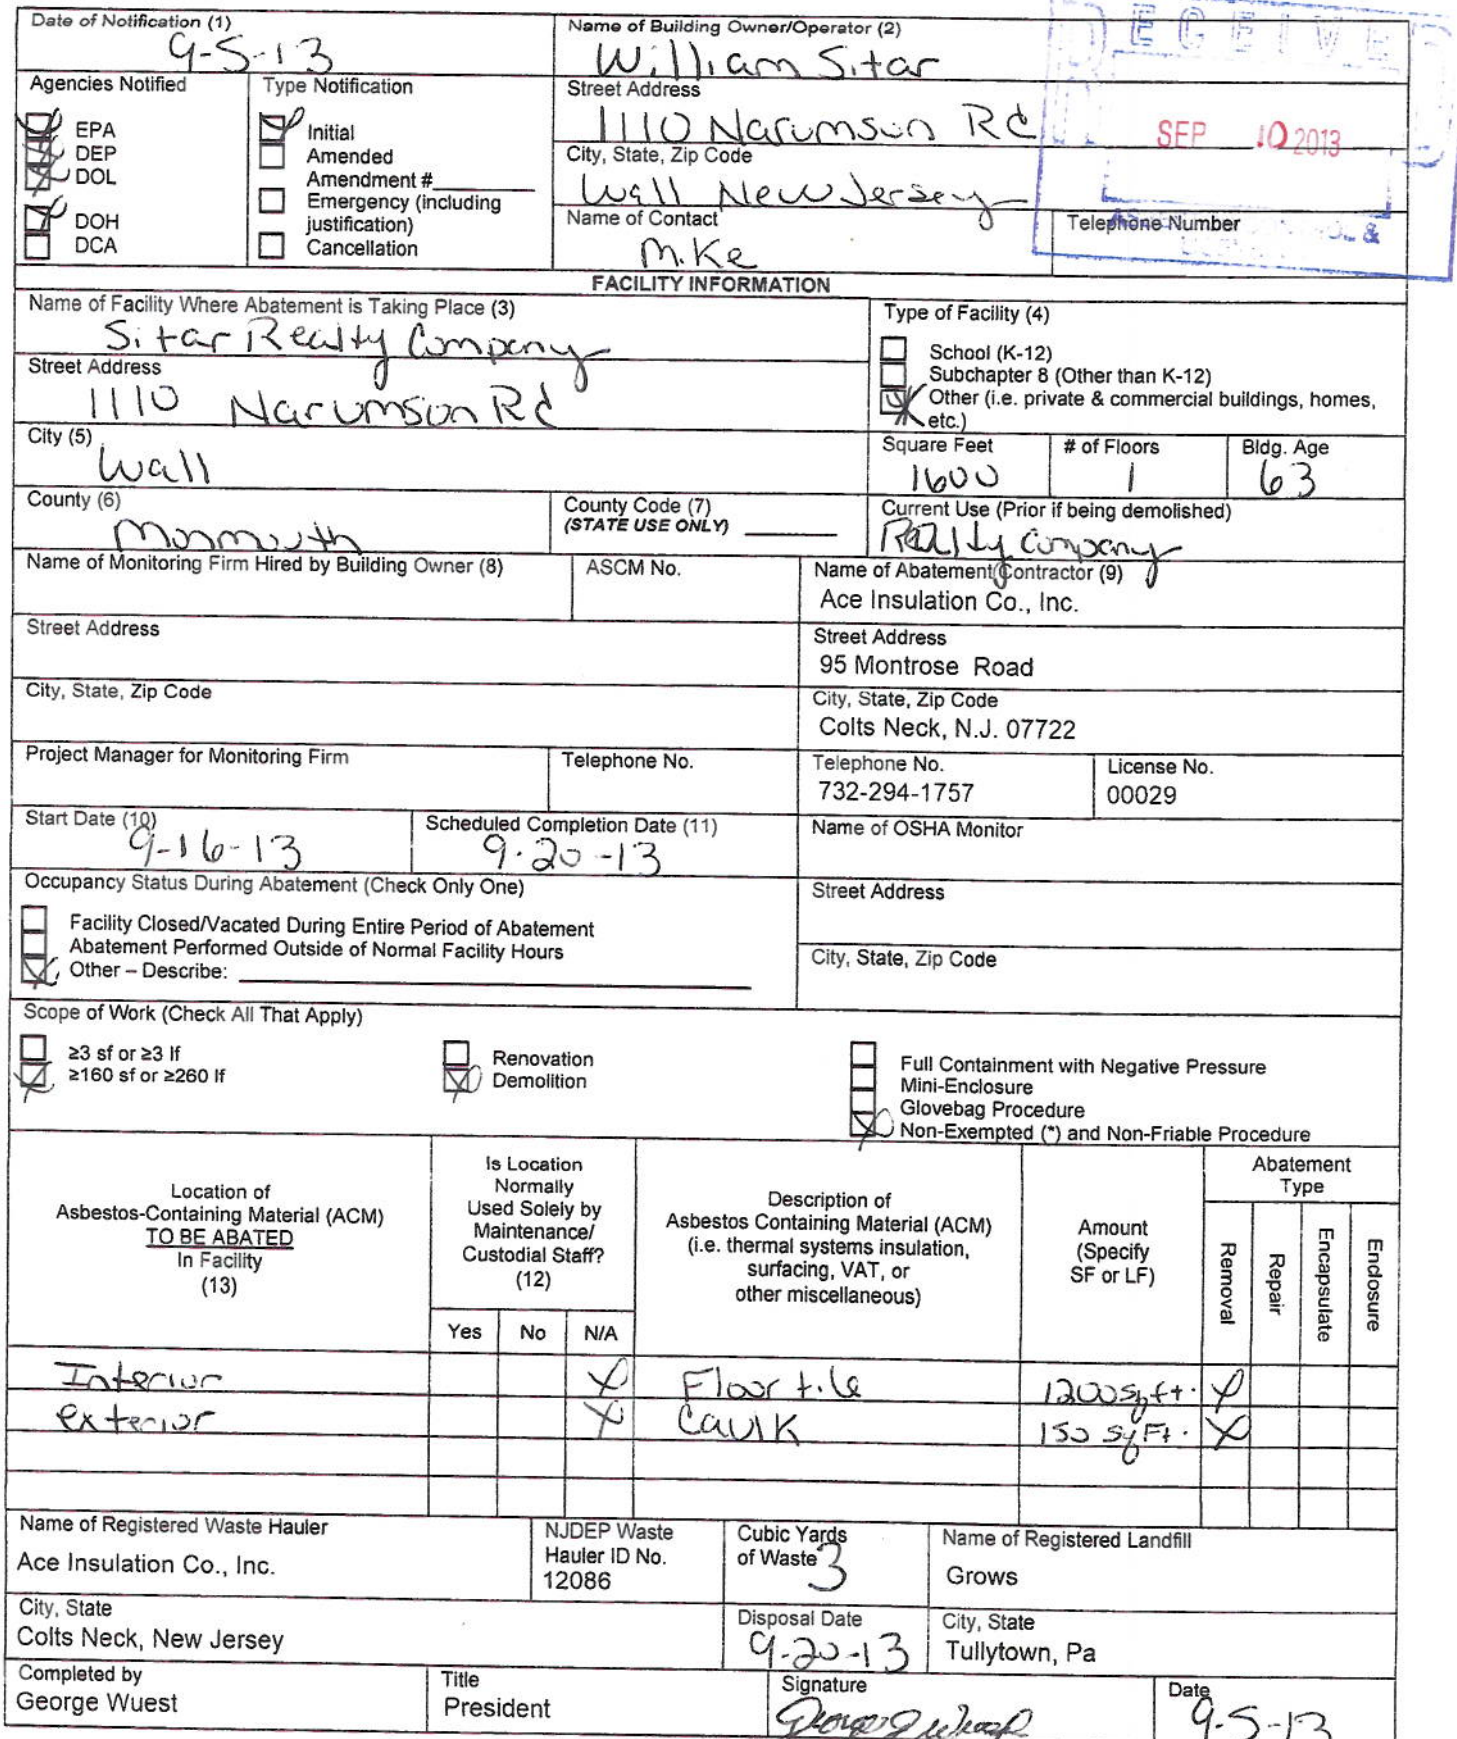 Date of Notification (1)
9-5-13
Name of Building Owner/Operator (2)
William Sitar
RECEIVED
SEP 10 2013
Agencies Notified
EPA
DEP
DOL
DOH
DCA
Type Notification
Initial
Amended
Amendment #
Emergency (including
justification)
Cancellation
Street Address
1110 Narumson Rd
City, State, Zip Code
Wall New Jersey
Name of Contact
Mike
Telephone Number
&
FACILITY INFORMATION
Name of Facility Where Abatement is Taking Place (3)
Sitar Realty Company
Street Address
1110 Narumson Rd
Type of Facility (4)
School (K-12)
Subchapter 8 (Other than K-12)
Other (i.e. private & commercial buildings, homes,
etc.)
City (5)
Wall
Square Feet
1600
# of Floors
1
Bldg. Age
63
County (6)
Monmouth
County Code (7)
(STATE USE ONLY)
Current Use (Prior if being demolished)
Realty Company
Name of Monitoring Firm Hired by Building Owner (8)
ASCM No.
Name of Abatement Contractor (9)
Ace Insulation Co., Inc.
Street Address
Street Address
95 Montrose Road
City, State, Zip Code
City, State, Zip Code
Colts Neck, N.J. 07722
Project Manager for Monitoring Firm
Telephone No.
Telephone No.
732-294-1757
License No.
00029
Start Date (10)
9-16-13
Scheduled Completion Date (11)
9-20-13
Name of OSHA Monitor
Occupancy Status During Abatement (Check Only One)
Facility Closed/Vacated During Entire Period of Abatement
Abatement Performed Outside of Normal Facility Hours
Other – Describe:
Street Address
City, State, Zip Code
Scope of Work (Check All That Apply)
≥3 sf or ≥3 lf
≥160 sf or ≥260 lf
Renovation
Demolition
Full Containment with Negative Pressure
Mini-Enclosure
Glovebag Procedure
Non-Exempted (*) and Non-Friable Procedure
Location of
Asbestos-Containing Material (ACM)
TO BE ABATED
In Facility
(13)
Is Location
Normally
Used Solely by
Maintenance/
Custodial Staff?
(12)
Yes No N/A
Description of
Asbestos Containing Material (ACM)
(i.e. thermal systems insulation,
surfacing, VAT, or
other miscellaneous)
Amount
(Specify
SF or LF)
Abatement
Type
Removal
Repair
Encapsulate
Enclosure
Interior X Floor tile 1200 sq ft. X
exterior X Caulk 150 sq Ft. X
Name of Registered Waste Hauler
Ace Insulation Co., Inc.
NJDEP Waste
Hauler ID No.
12086
Cubic Yards
of Waste 3
Name of Registered Landfill
Grows
City, State
Colts Neck, New Jersey
Disposal Date
9-20-13
City, State
Tullytown, Pa
Completed by
George Wuest
Title
President
Signature
Date
9-5-13